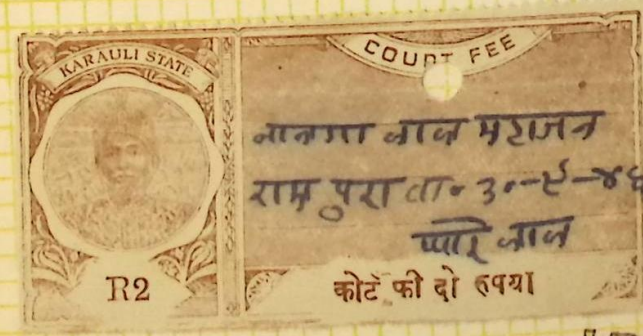 KARAULI STATE
COURT FEE
लाल महाजन
राम पुरा ता॰ ३०-९-४६
प्यारे लाल
R2
कोर्ट फी दो रुपया